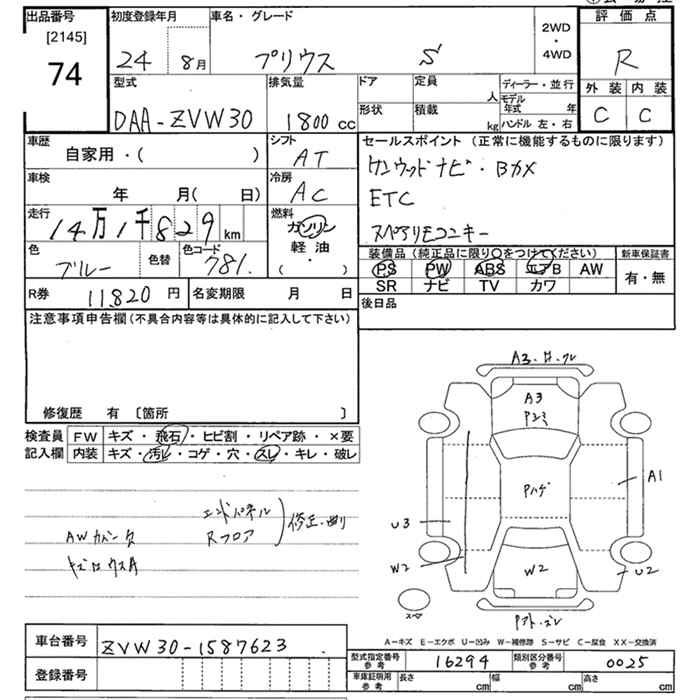 出品番号 初度登録年月 車名・グレード 2WD・4WD 評価点
[2145] 74 24 8月 プリウス S R
型式 排気量 ドア 定員 人 ディーラー・並行 外装 内装
DAA-ZVW30 1800cc 形状 積載 kg モデル年式 年 ハンドル 左・右 C C
車歴 自家用・( ) シフト AT セールスポイント (正常に機能するものに限ります)
車検 年 月( 日) 冷房 AC ケンウッドナビ・Bカメ
ETC
走行 14万1千829km 燃料 ガソリン 軽油・( ) スペアリモコンキー
色 ブルー 色替 色コード 781. 装備品 (純正品に限り○をつけてください) 新車保証書
PS PW ABS エアB AW 有・無
SR ナビ TV カワ
R券 11,820円 名変期限 月 日 後日品
注意事項申告欄 (不具合内容等は具体的に記入して下さい)
修復歴 有 〔箇所 〕
検査員記入欄 FW キズ・飛石・ヒビ割・リペア跡・×要
内装 キズ・汚レ・コゲ・穴・スレ・キレ・破レ
エンドパネル
Rフロア
修正・曲り
AW
A3
A3
Pハゲ
A1
U3
W2
W2
U2
スペア
A-キズ E-エクボ U-凹み W-補修跡 S-サビ C-腐食 XX-交換済
車台番号 ZVW30-1587623
登録番号
型式指定番号 参考 16294 類別区分番号 参考 0025
車庫証明用 参考 長さ cm 幅 cm 高さ cm